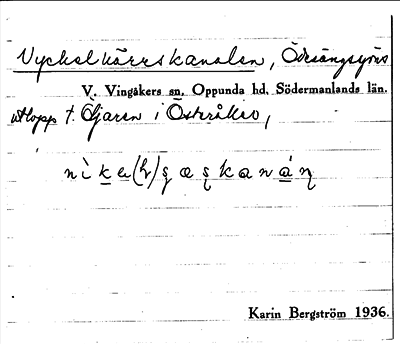 Nyckelkärrskanalen, Ödesängsgöns
V. Vingåkers sn. Oppunda hd. Södermanlands län.
utlopp t. Öljaren i Österåker,
Karin Bergström 1936.